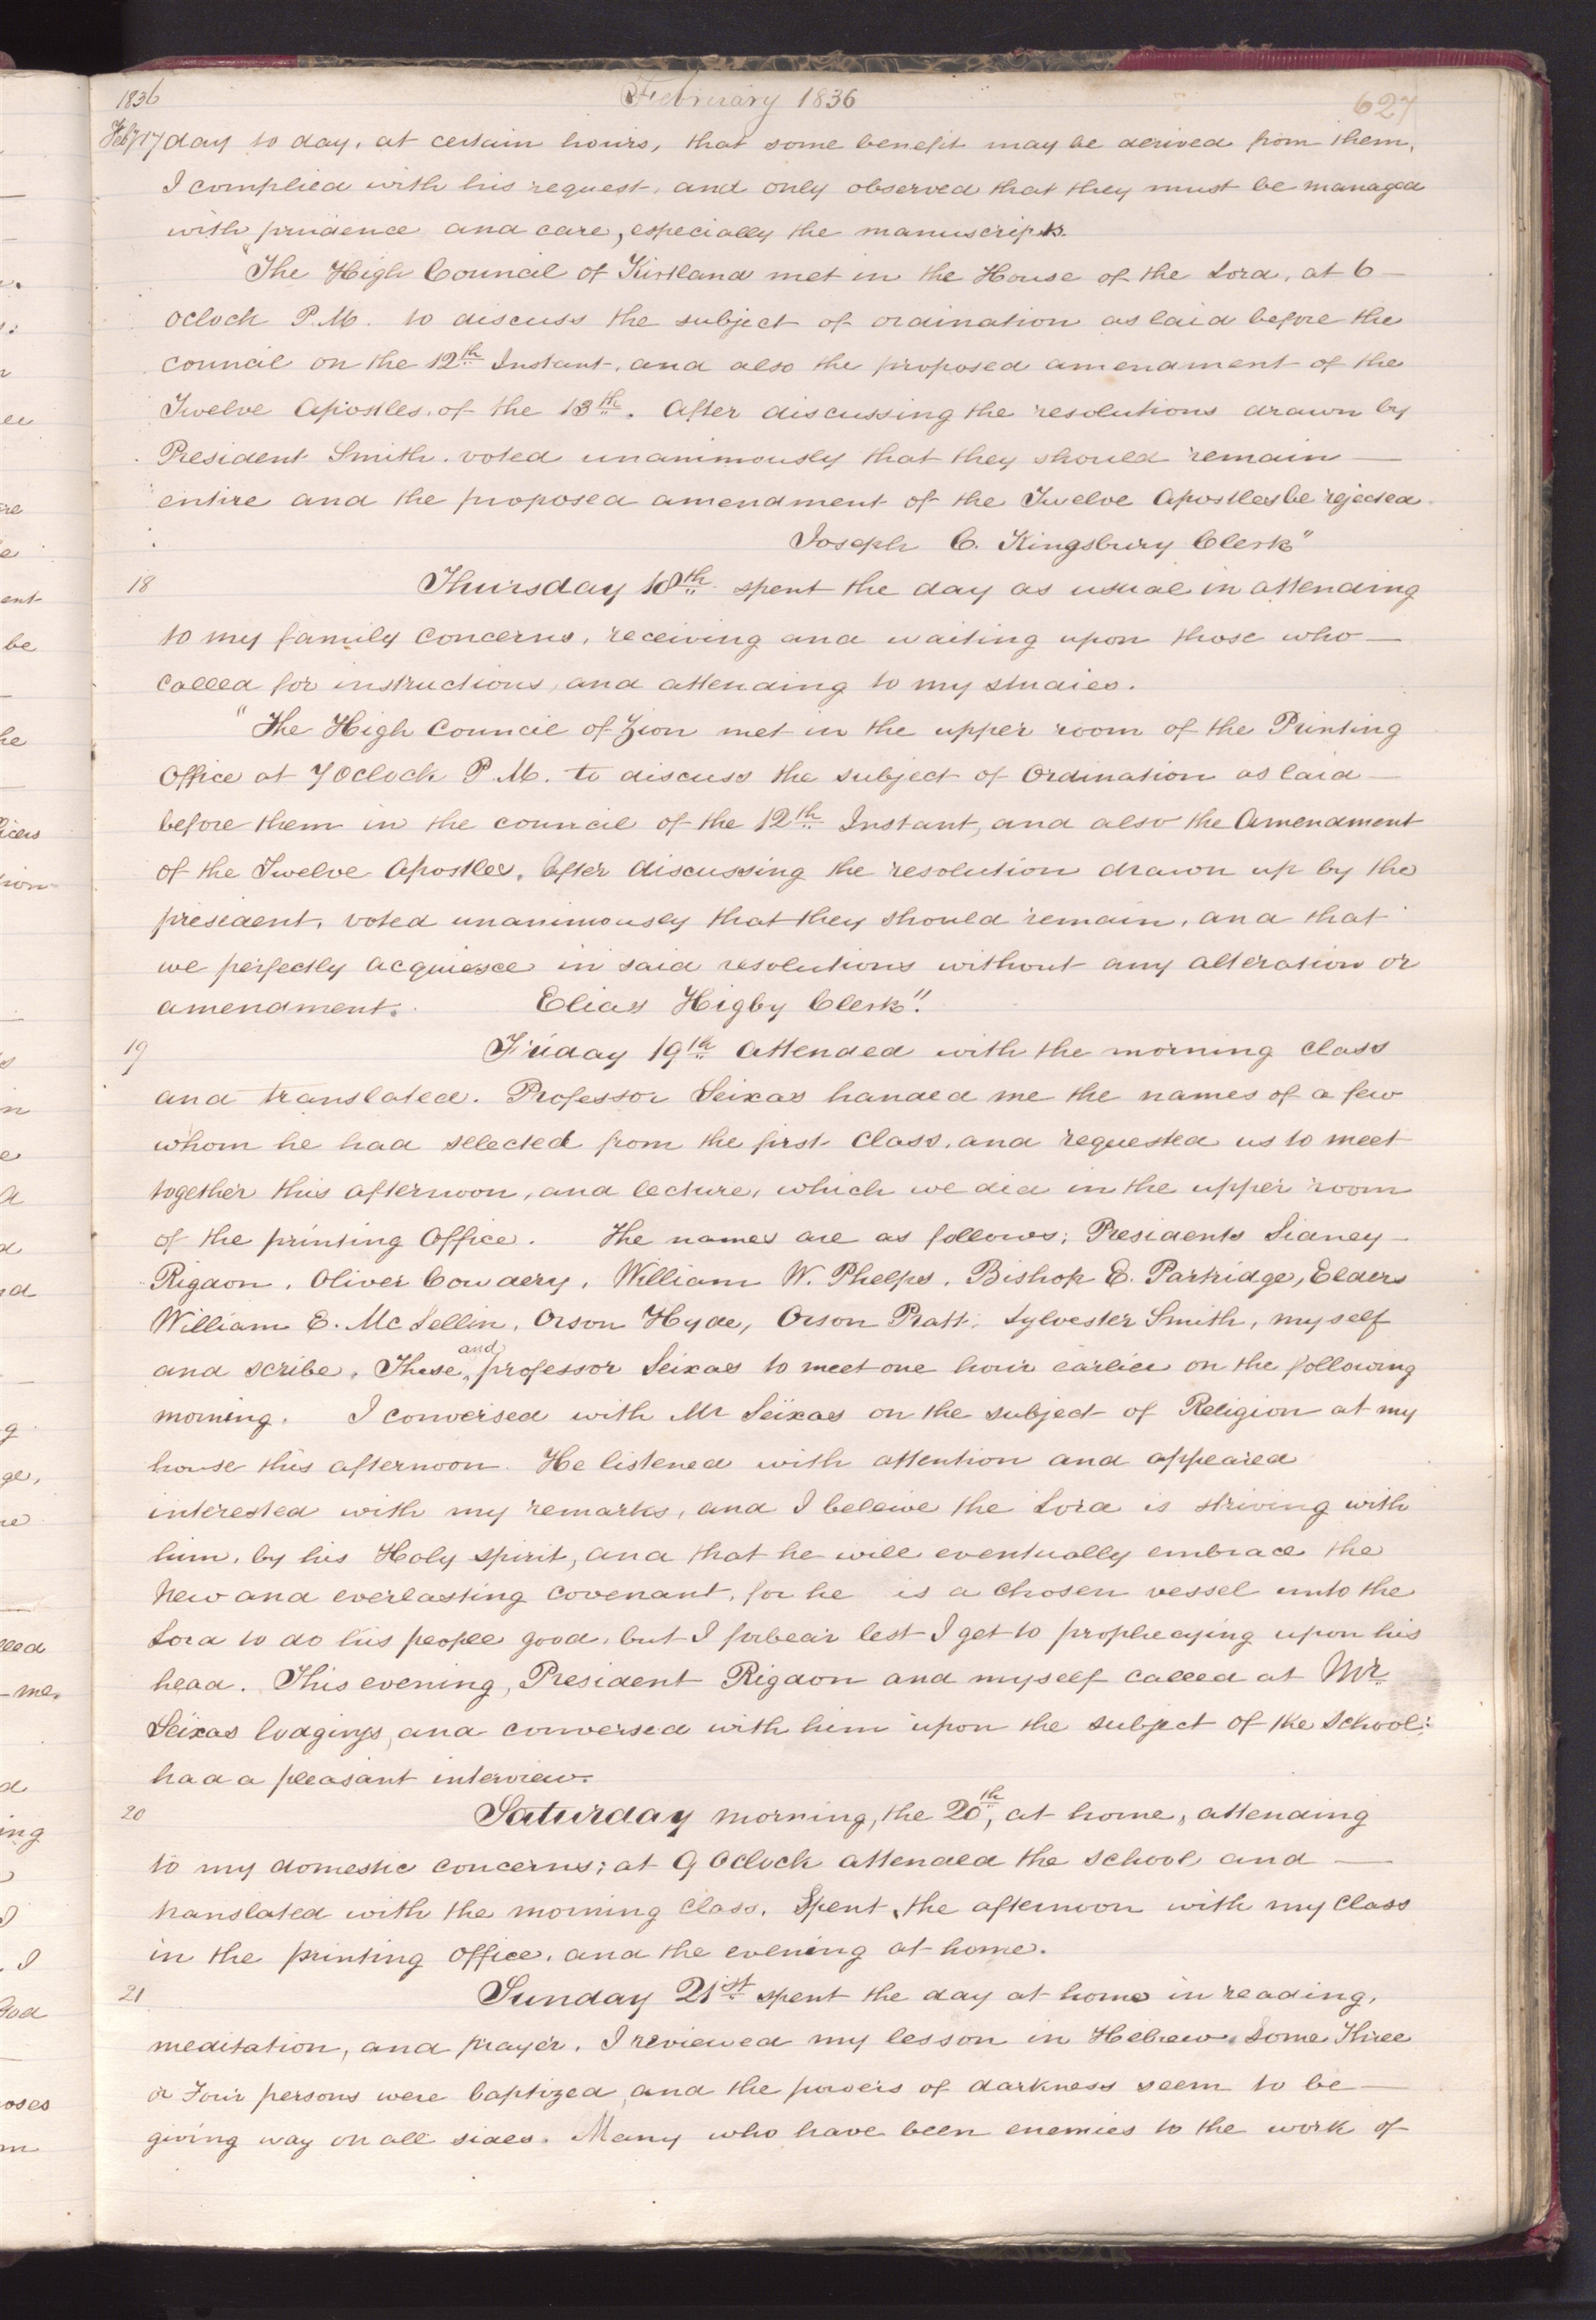 1836
February 1836
627
Feby 17 day to day, at certain hours, that some benefit may be derived from them,
I complied with his request, and only observed that they must be managed
with prudence and care, especially the manuscripts.
"The High Council of Kirtland met in the House of the Lord, at 6 —
oclock P.M. to discuss the subject of ordination as laid before the
council on the 12th Instant, and also the proposed amendment of the
Twelve Apostles, of the 13th. After discussing the resolutions drawn by
President Smith, voted unanimously that they should remain —
entire and the proposed amendment of the Twelve Apostles be rejected.
Joseph C. Kingsbury Clerk"
18
Thursday 18th spent the day as usual in attending
to my family concerns, receiving and waiting upon those who —
called for instructions, and attending to my studies.
"The High Council of Zion met in the upper room of the Printing
Office at 7 Oclock P.M. to discuss the subject of Ordination as laid —
before them in the council of the 12th Instant, and also the Amendment
of the Twelve Apostles. After discussing the resolution drawn up by the
president, voted unanimously that they should remain, and that
we perfectly acquiesce in said resolutions without any alteration or
amendment. Elias Higby Clerk".
19
Friday 19th Attended with the morning class
and translated. Professor Seixas handed me the names of a few
whom he had selected from the first Class, and requested us to meet
together this afternoon, and lecture, which we did in the upper room
of the printing Office. The names are as follows; Presidents Sidney —
Rigdon, Oliver Cowdery, William W. Phelps, Bishop E. Partridge, Elders
William E. Mc Lellin, Orson Hyde, Orson Pratt, Sylvester Smith, myself
and scribe. These and professor Seixas to meet one hour earlier on the following
morning. I conversed with Mr Seixas on the subject of Religion at my
house this afternoon. He listened with attention and appeared
interested with my remarks, and I beleive the Lord is striving with
him, by his Holy spirit, and that he will eventually embrace the
New and everlasting covenant, for he is a chosen vessel unto the
Lord to do his people good, but I forbear lest I get to prophecying upon his
head. This evening, President Rigdon and myself called at Mr.
Seixas lodgings, and conversed with him upon the subject of the School:
had a pleasant interview.
20
Saturday morning, the 20th, at home, attending
to my domestic concerns; at 9 Oclock attended the school and —
translated with the morning class. Spent the afternoon with my Class
in the printing office, and the evening at home.
21
Sunday 21st spent the day at home in reading,
meditation, and prayer. I reviewed my lesson in Hebrew. Some Three
or Four persons were baptized, and the powers of darkness seem to be —
giving way on all sides. Many who have been enemies to the work of